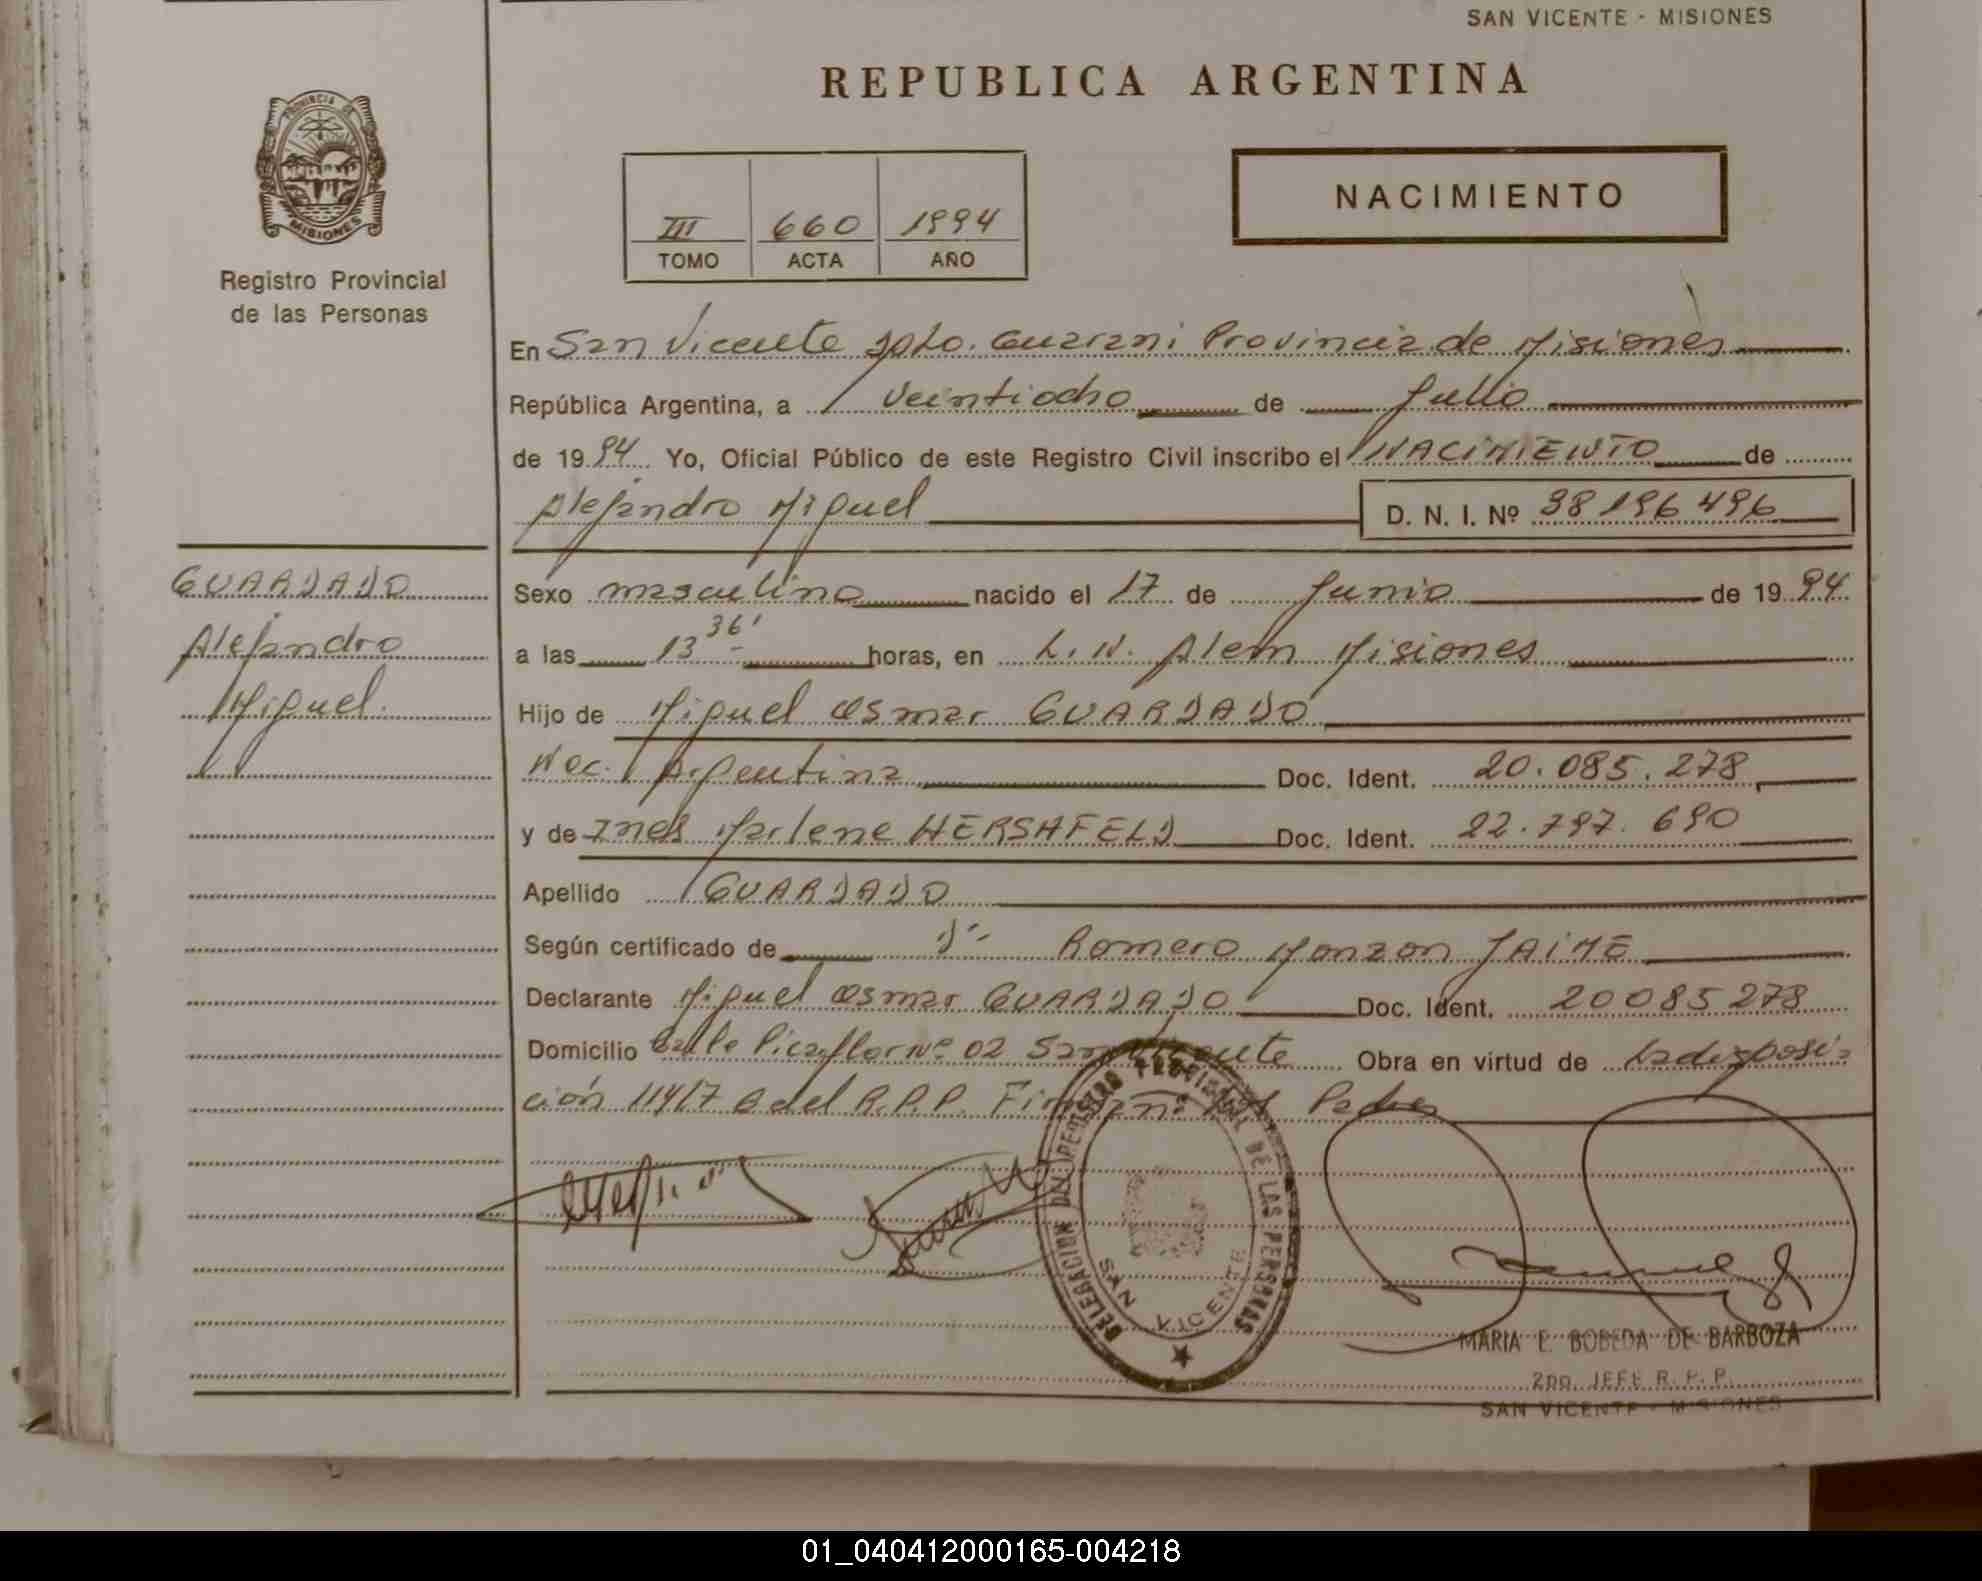 SAN VICENTE - MISIONES
REPUBLICA ARGENTINA
PROVINCIA DE
MISIONES
Registro Provincial
de las Personas
NACIMIENTO
III 660 1994
TOMO ACTA AÑO
En San Vicente Dpto. Guarani Provincia de Misiones
República Argentina, a Veintiocho de Julio
de 1994 Yo, Oficial Público de este Registro Civil inscribo el NACIMIENTO de
Alejandro Miguel D. N. I. Nº 38196496
GUARDADO
Alejandro
Miguel.
Sexo masculino nacido el 17 de Junio de 1994
a las 13 36' horas, en L. N. Alem Misiones
Hijo de Miguel Osmar GUARDADO
Nac. Argentina Doc. Ident. 20.085.278
y de Ines Marlene HERSAFELD Doc. Ident. 22.797.690
Apellido GUARDADO
Según certificado de Dr Romero Monzon JAIME
Declarante Miguel Osmar GUARDADO Doc. Ident. 20085278
Domicilio Calle Picaflor Nº 02 San Vicente Obra en virtud de la disposi-
ción 114/7 del R.P.P. Firman: los Padres
DELEGACION DEL REGISTRO PROVINCIAL DE LAS PERSONAS
SAN VICENTE
MARIA E. BOBEDA DE BARBOZA
2DO. JEFE R. P. P.
SAN VICENTE - MISIONES
01_040412000165-004218